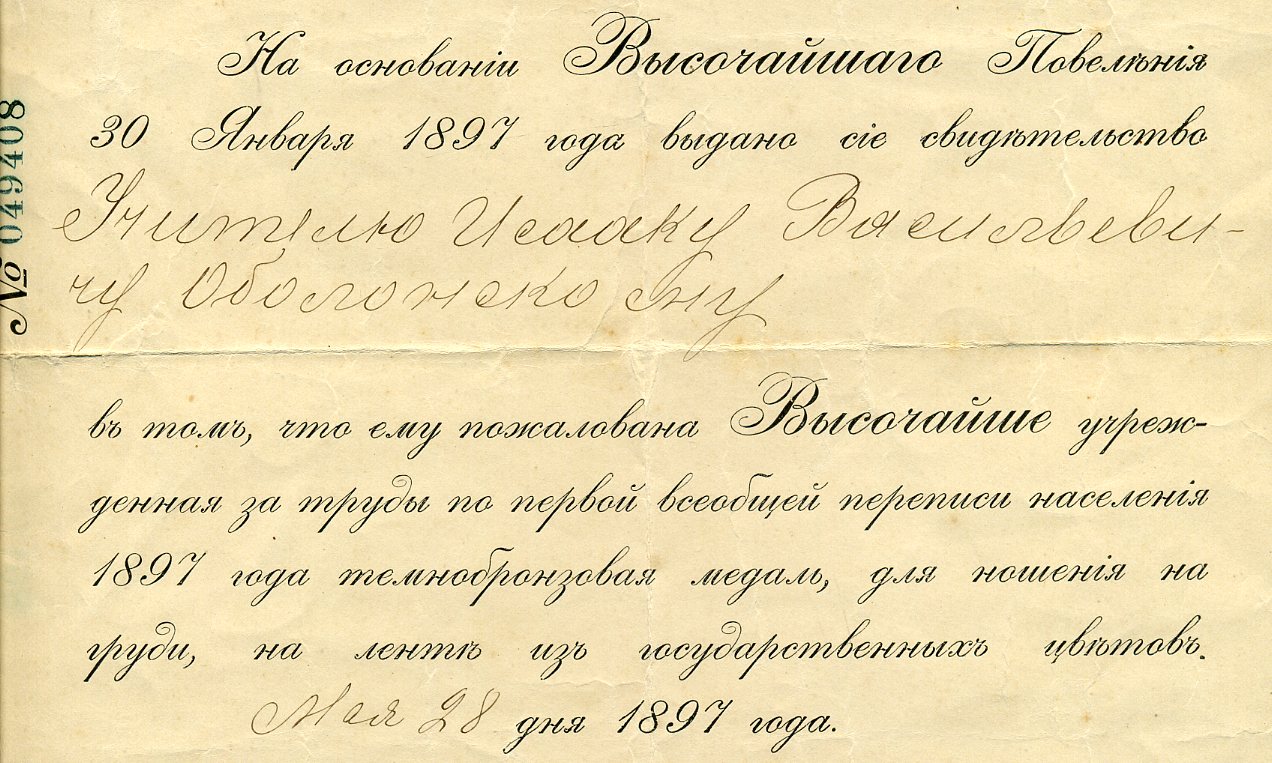 На основаніи Высочайшаго Повелѣнія
30 Января 1897 года выдано сіе свидѣтельство
Учителю Исааку Васильеви-
чу Оболонскому
въ томъ, что ему пожалована Высочайше учреж-
денная за труды по первой всеобщей переписи населенія
1897 года темнобронзовая медаль, для ношенія на
груди, на лентѣ изъ государственныхъ цвѣтовъ.
Мая 28 дня 1897 года.
№ 049408